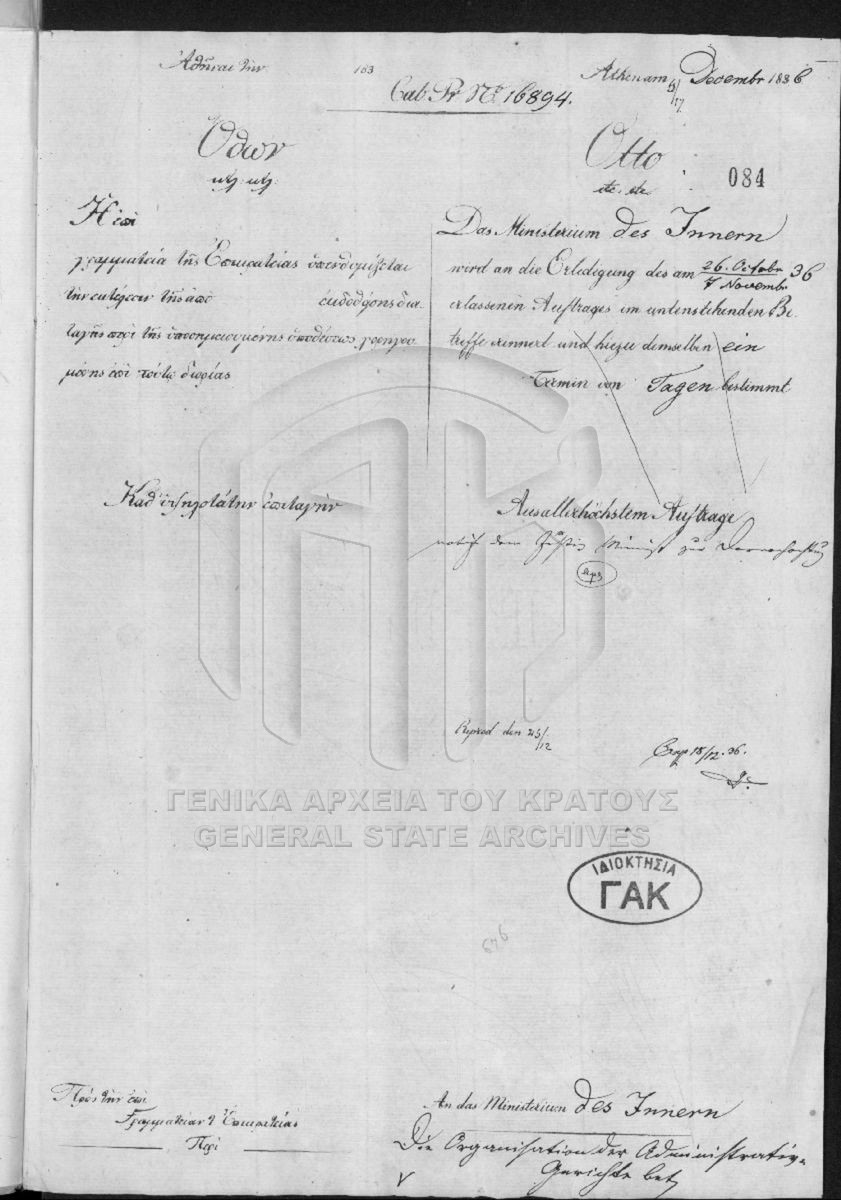 Ἀθῆναι τὴν
103
Athen am 5/17 Decembr 1836
Cab. Pr. No 16894.
Ὄθων
κτλ. κτλ.
Otto
etc. etc.
084
Ἡ ἐπὶ
γραμματεία τῆς Ἐπικρατείας ὑπενθυμίζεται
τὴν εκτέλεσιν τῆς ἀπὸ ἐκδοθείσης δια-
ταγῆς περὶ τῆς ὑποσημειουμένης ὑποθέσεως χορηγου-
μένης ἐπὶ τούτῳ διορίας
Das Ministerium des Innern
wird an die Erledigung des am 26. Octobr / 7 Novembr 36
erlassenen Auftrages im untenstehenden Be-
treffe erinnert und hiezu demselben ein
Termin von Tagen bestimmt
Καθ' ὑψηλοτάτην ἐπιταγήν
Aus allerhöchstem Auftrage
notif dem Justiz Minist zur
den 15/12
18/12. 36.
ΓΕΝΙΚΑ ΑΡΧΕΙΑ ΤΟΥ ΚΡΑΤΟΥΣ
GENERAL STATE ARCHIVES
ΙΔΙΟΚΤΗΣΙΑ
ΓΑΚ
Πρὸς τὴν ἐπὶ
Γραμματείαν τ. Ἐπικρατείας
Περὶ
An das Ministerium des Innern
Die Organisation der Administrativ-
Gerichte bet.